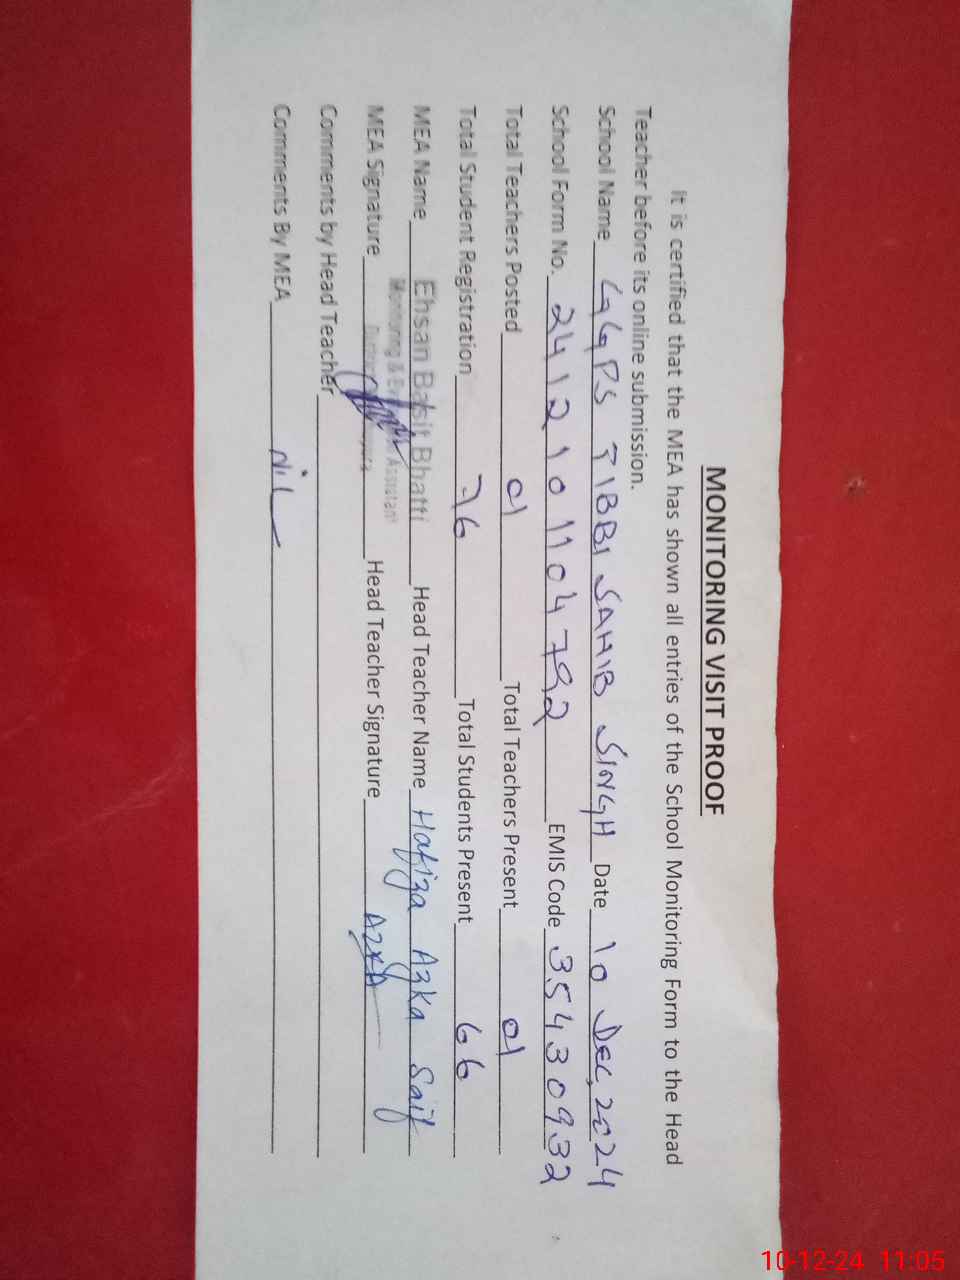 MONITORING VISIT PROOF
It is certified that the MEA has shown all entries of the School Monitoring Form to the Head
Teacher before its online submission.
School Name GGPS TIBBI SAHIB SINGH Date 10 Dec, 2024
School Form No. 2412101104792 EMIS Code 35430932
Total Teachers Posted 01 Total Teachers Present 01
Total Student Registration 76 Total Students Present 66
MEA Name Ehsan Basit Bhatti Head Teacher Name Hafiza Azka Saif
Monitoring & Assistant
MEA Signature Head Teacher Signature AZKA
Comments by Head Teacher
Comments By MEA NiL
10-12-24 11:05